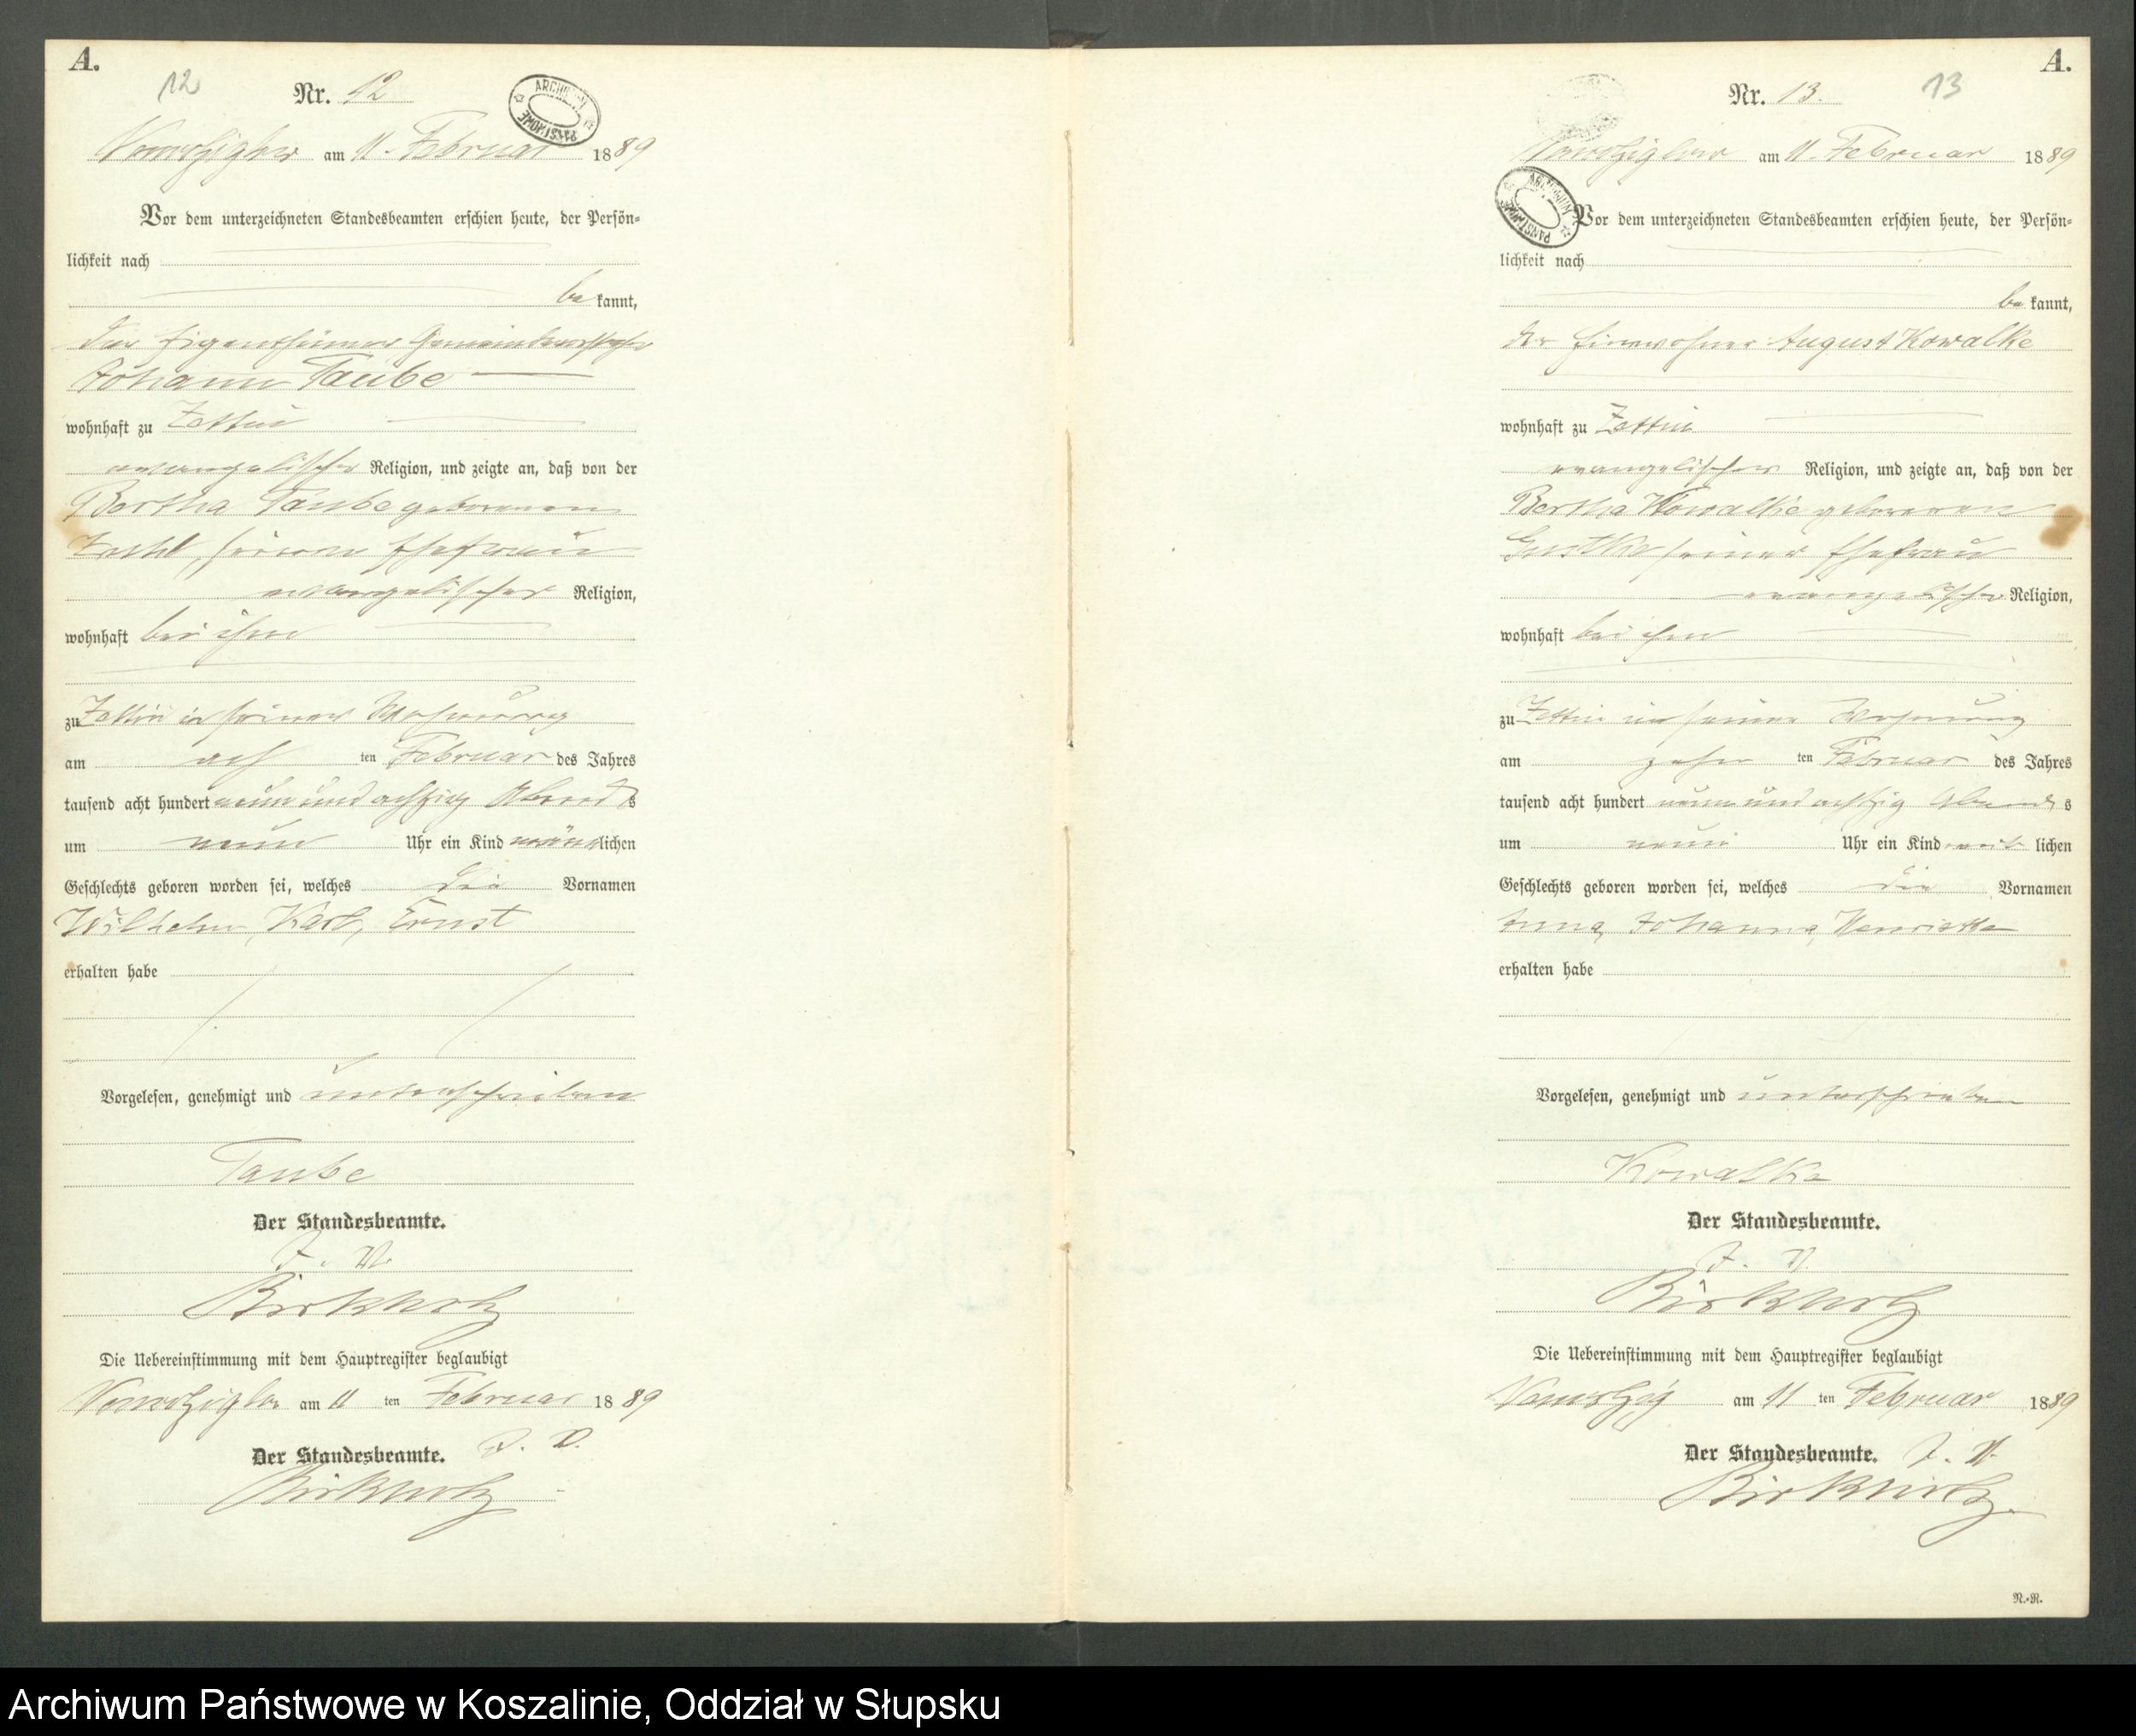 A.
12
Nr. 12
ARCHIWUM PAŃSTWOWE
am 11. Februar 1889
Vor dem unterzeichneten Standesbeamten erschien heute, der Persön-
lichkeit nach
be kannt,
der Eigenthümer Gemeindevorsteher
Johann Taube
wohnhaft zu Zettin
evangelischer Religion, und zeigte an, daß von der
Bertha Taube geborenen
seiner Ehefrau
evangelischer Religion,
wohnhaft bei ihm
zu Zettin in seiner Wohnung
am ach ten Februar des Jahres
tausend acht hundert neun und achtzig Abends
um neun Uhr ein Kind männlichen
Geschlechts geboren worden sei, welches die Vornamen
Wilhelm, Karl, Ernst
erhalten habe
Vorgelesen, genehmigt und unterschrieben
Taube
Der Standesbeamte.
J. V.
Birkholz
Die Uebereinstimmung mit dem Hauptregister beglaubigt
am 11 ten Februar 1889
Der Standesbeamte. J. V.
Birkholz
A.
Nr. 13.
13
am 11. Februar 1889
ARCHIWUM PAŃSTWOWE
Vor dem unterzeichneten Standesbeamten erschien heute, der Persön-
lichkeit nach
be kannt,
der Einwohner August Kowalke
wohnhaft zu Zettin
evangelischer Religion, und zeigte an, daß von der
Bertha Kowalke geborenen
Gustke seiner Ehefrau
evangelischer Religion,
wohnhaft bei ihm
zu Zettin in seiner Wohnung
am zehn ten Februar des Jahres
tausend acht hundert neun und achtzig Abends
um neun Uhr ein Kind weib lichen
Geschlechts geboren worden sei, welches die Vornamen
Anna, Johanna, Henriette
erhalten habe
Vorgelesen, genehmigt und unterschrieben
Kowalke
Der Standesbeamte.
J. V.
Birkholz
Die Uebereinstimmung mit dem Hauptregister beglaubigt
am 11 ten Februar 1889
Der Standesbeamte. J. V.
Birkholz
N.-R.
Archiwum Państwowe w Koszalinie, Oddział w Słupsku